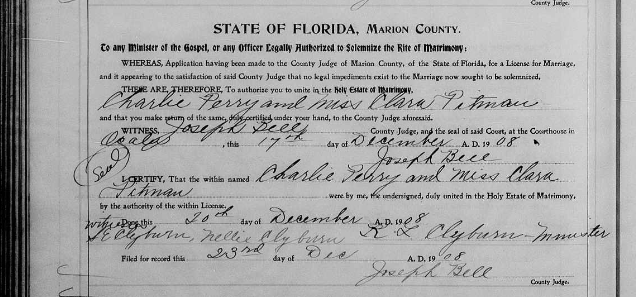 County Judge.
STATE OF FLORIDA, MARION COUNTY.
To any Minister of the Gospel, or any Officer Legally Authorized to Solemnize the Rite of Matrimony:
WHEREAS, Application having been made to the County Judge of Marion County, of the State of Florida, for a License for Marriage,
and it appearing to the satisfaction of said County Judge that no legal impediments exist to the Marriage now sought to be solemnized,
THESE ARE, THEREFORE, To authorize you to unite in the Holy Estate of Matrimony,
Charlie Perry and Miss Clara Pitman
and that you make return of the same, duly certified under your hand, to the County Judge aforesaid.
WITNESS, Joseph Bell County Judge, and the seal of said Court, at the Courthouse in
Ocala, this 17th day of December A. D. 1908
(Seal) Joseph Bell
I CERTIFY, That the within named Charlie Perry and Miss Clara
Pitman were by me, the undersigned, duly united in the Holy Estate of Matrimony,
by the authority of the within License.
witnesses Done this 20th day of December A. D. 1908
Clyburn, Nellie Clyburn R L Clyburn - Minister
Filed for record this 23rd day of Dec A. D. 1908
Joseph Bell
County Judge.